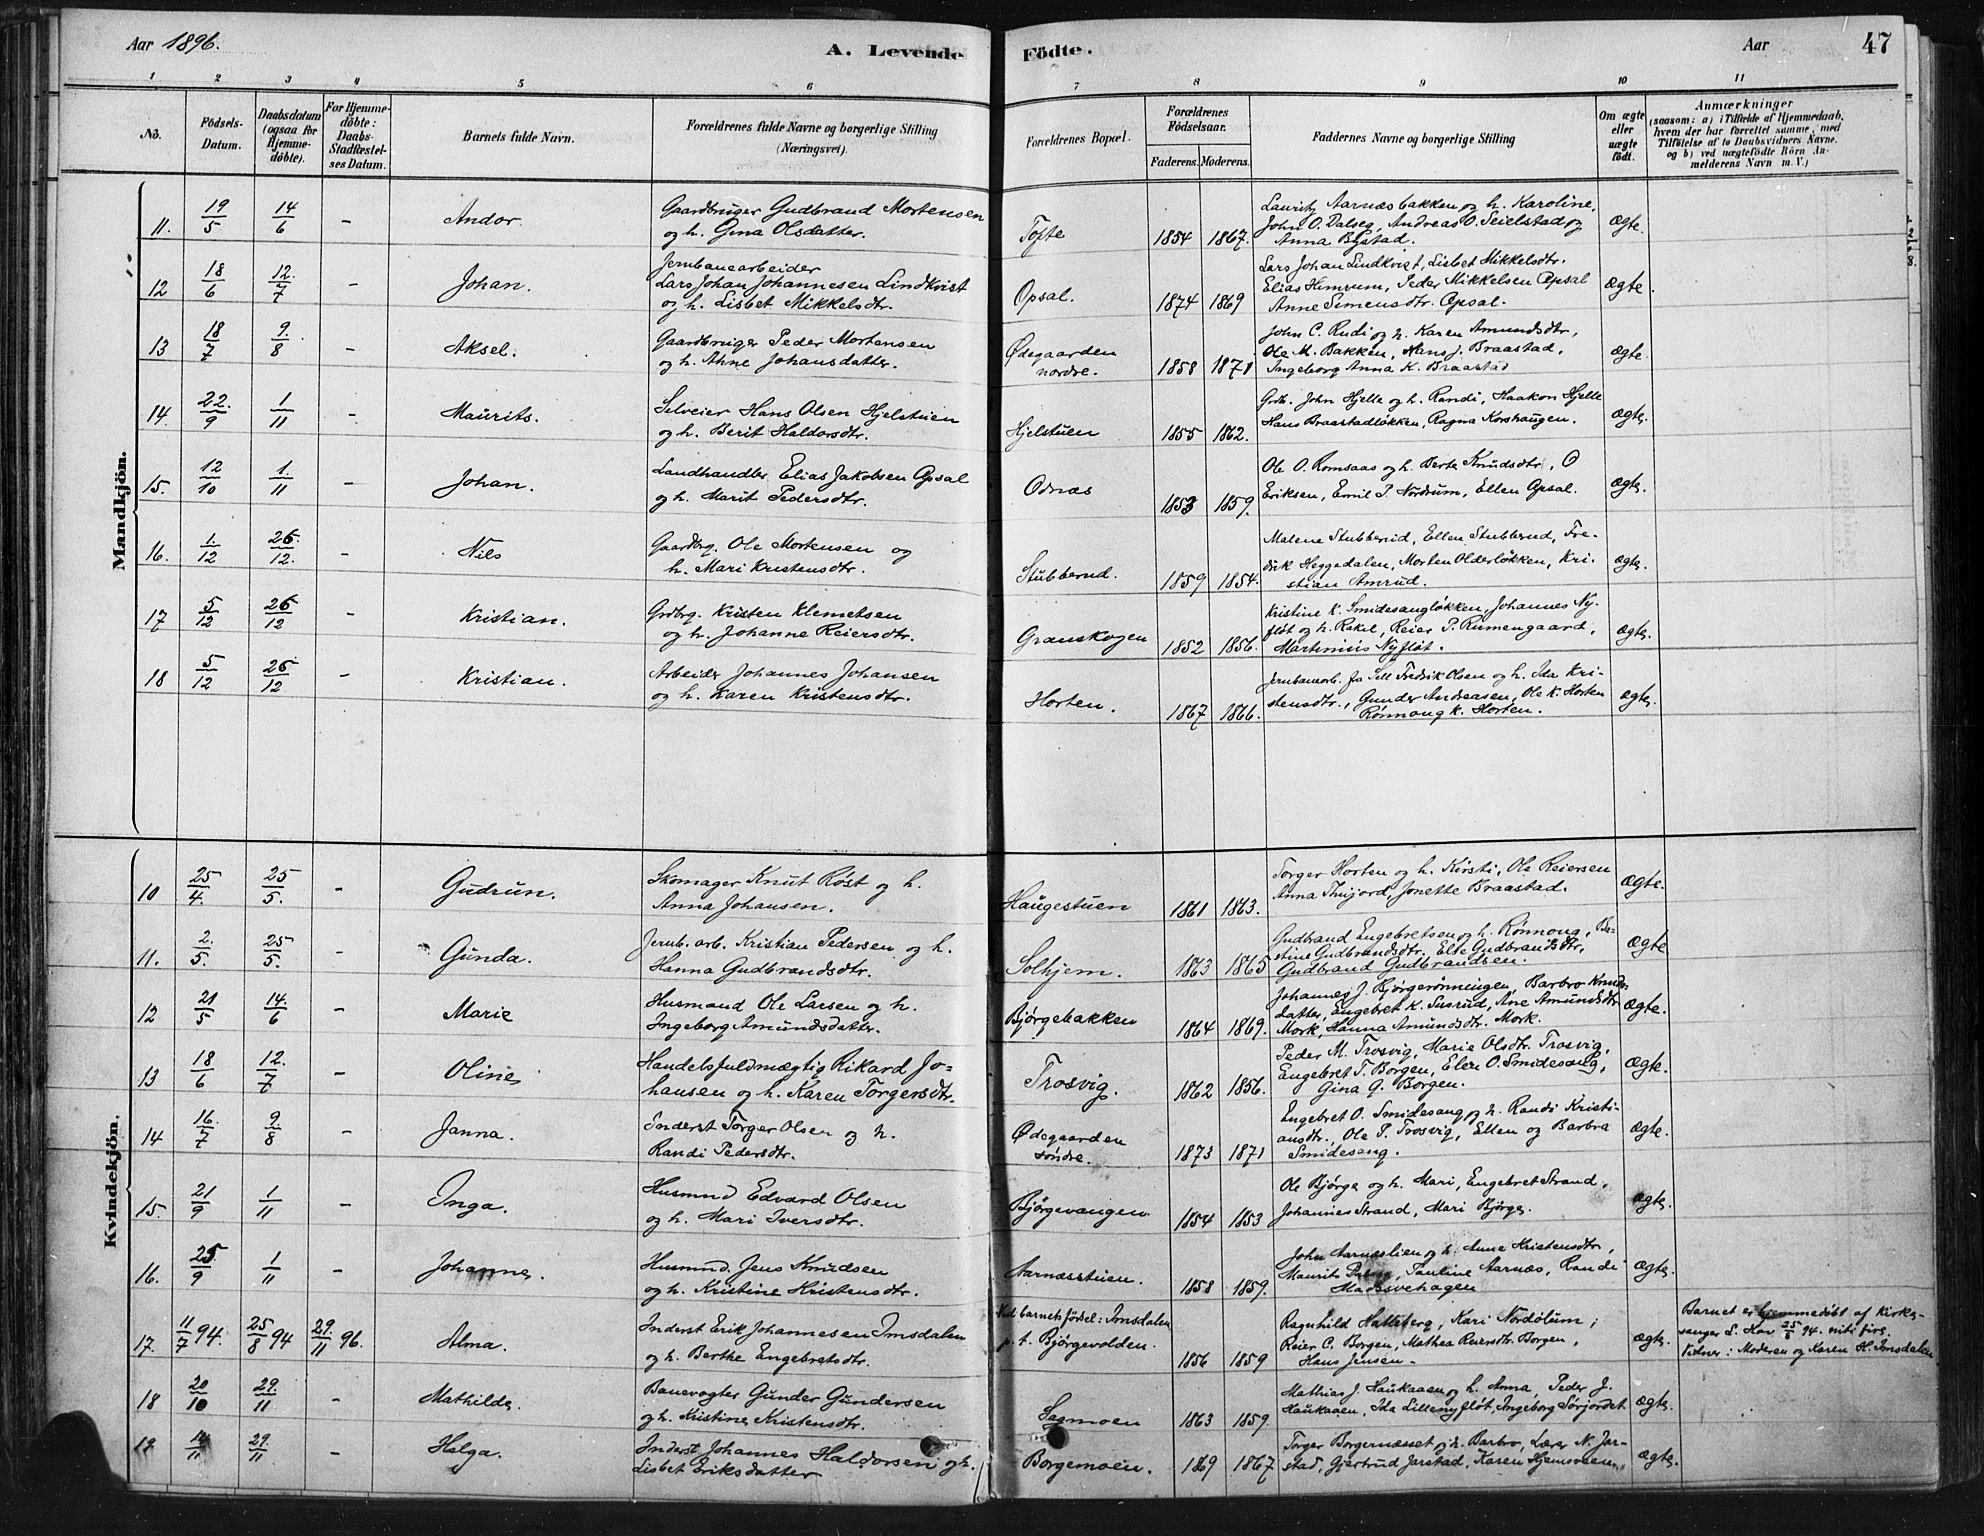 Aar 1896.
A. Levende Födte.
Aar
47
1 2 3 4 5 6 7 8 9 10 11
No.
Födsels-Datum.
Daabsdatum (ogsaa for Hjemme-döbte).
For Hjemme-döbte: Daabs-Stadfæstel-ses Datum.
Barnets fulde Navn.
Forældrenes fulde Navne og borgerlige Stilling (Næringsvei).
Forældrenes Bopæl.
Forældrenes Födselsaar.
Faderens. Moderens.
Faddernes Navne og borgerlige Stilling
Om ægte eller uægte födt.
Anmærkninger
(saasom: a) i Tilfælde af Hjemmedaab, hvem der har forrettet samme, med Tilföielse af to Daabsvidners Navne. og b) ved uægtefödte Börn An-melderens Navn m. V.)
Mandkjön.
11. 19/5 14/6 - Andor. Gaardbruger Gudbrand Mortensen og h. Gina Olsdatter. Tofte 1854 1867. Lauritz Aarnæsbakken og h. Karoline, John O. Dalseg, Andreas O. Seielstad og Anna Bystad. ægte.
12 18/6 12/7 - Johan. Jernbanearbeider Lars Johan Johannesen Lindkvist og h. Lisbet Mikkelsdtr. Opsal. 1874 1869 Lars Johan Lindkvist, Lisbet Mikkelsdtr. Elias Himrum, Peder Mikkelsen Opsal Anne Simensdtr. Opsal. ægte.
13 18/7 9/8 - Aksel. Gaardbruger Peder Mortensen og h. Ahne Johansdatter. Ødegaarden nordre. 1858 1871 John C. Rudi og h. Karen Amundsdtr, Ole M. Bakken, Hans J. Braastad, Ingeborg Anna K. Braastad ægte
14. 22/9 1/11 - Maurits. Selveier Hans Olsen Hjelstuen og h. Berit Haldorsdtr. Hjelstuen 1855 1862. Grdb. John Hjelle og h. Randi, Haakon Hjelle Hans Braastadløkken, Ragna Korshaugen. ægte.
15. 12/10 1/11 - Johan. Landhandler Elias Jakobsen Opsal og h. Marit Pedersdtr. Odnæs 1853 1859. Ole O. Romsaas og h. Berte Knudsdtr, O Eriksen, Emil P. Nordrum, Ellen Opsal. ægte.
16. 1/12 26/12. - Nils Gaardbrg. Ole Mortensen og h. Mari Kristensdtr. Stubberud. 1859 1854. Malene Stubberud, Ellen Stubberud, Fre-drik Heggedalen, Morten Olderløkken, Kri-stian Amrud. ægte.
17 5/12 26/12 - Kristian. Grdbrg. Kristen Klemetsen og h. Johanne Reiersdtr. Granskogen 1852 1856. Kristine K. Smidesangløkken, Johannes Ny-fløt og h. Rakel, Reier P. Rumengaard, Martinius Nyfløt. ægte.
18 5/12 26/12 - Kristian. Arbeider Johannes Johansen og h. Karen Kristensdtr. Horten. 1867 1866. Jernbanearb. fra Sell Fredrik Olsen og h. Ida Kri-stensdtr., Gunder Andreasen, Ole K. Horten Rønnoug K. Horten. ægte.
Kvindekjön.
10 25/4. 25/5. - Gudrun. Skomager Knut Røst og h. Anna Johansen. Haugestuen 1861 1863. Torger Horten og h. Kirsti, Ole Reiersen Anna Thujord, Jonette Braastad. ægte.
11. 2/5. 25/5. - Gunda. Jernb. arb. Kristian Pedersen og h. Hanna Gudbrandsdtr. Solhjem. 1863 1865 Gudbrand Engebretsen og h. Rønnoug, Ba-stine Gudbrandsdtr. Else Gudbrandsdtr, Gudbrand Gudbrandsen. ægte
12 21/5 14/6 - Marie Husmand Ole Larsen og h. Ingeborg Amundsdatter. Bjørgebakken 1864 1869. Johannes J. Bjørgerønningen, Barbro Knuds-datter, Engebret K. Susrud, Ane Amundsdtr Mork, Hanna Amundsdtr. Mork. ægte.
13 18/6 12/7 - Oline, Handelsfuldmægtig Rikard Jo-hansen og h. Karen Torgersdtr. Trosvig. 1862 1856. Peder M. Trosvig, Marie Olsdtr. Trosvig, Engebret T. Borgen, Elen O. Smidesang, Gina G. Borgen. ægte.
14 16/7 9/8 - Janna. Inderst Torger Olsen og h. Randi Pedersdtr. Ødegaarden søndre. 1873 1871 Engebret O. Smidesang og h. Randi Kristi-ansdtr., Ole P. Trosvig, Ellen og Barbra Smidesang. ægte.
15. 21/9 1/11 - Inga. Husmnd Edvard Olsen og h. Mari Iversdtr. Bjørgevangen 1854 1853 Ole Bjørge og h. Mari, Engebret Strand, Johannes Strand, Mari Bjørge. ægte.
16. 25/9 1/11 - Johanne. Husmnd. Jens Knudsen og h. Kristine Kristensdtr. Aarnæsstuen. 1858 1859. John Aarnæslien og h. Anne Kristensdtr, Maurits Pauline Aarnæs, Randi Madssvehagen ægte.
17. 11/7 94. 25/8 94 29/11 96. Alma. Inderst Erik Johannesen Imsdalen og h. Berthe Engebretsdtr. Ved barnets fødsel: Imsdalen p. t. Bjørgevolden. 1856 1859 Ragnhild Hatleberg, Kari Nordølum, Reier C. Borgen, Mathea Reiersdtr. Borgen, Hans Jensen. ægte. Barnet er hjemmedøbt af kirke-sanger S. Hov 25/8 94. Vidner: Moderen og Karen H. Imsdalen
18 20/10 29/11 - Mathilde. Banevogter Gunder Gundersen og h. Kristine Kristensdtr. Sagmoen 1863 1859. Mathias J. Haukaaen og h. Anna, Peder J. Haukaaen, Ida Lillenyfløt, Ingeborg Sørjordet ægte.
19. 14/11 29/11 - Helga. Inderst Johannes Haldorsen og h. Lisbet Eriksdatter Borgemoen. 1869 1867 Torger Borgernæsset og h. Barbro, Lærer N. Jar-stad, Gjertrud Jarstad, Karen Hjemsveen. ægte.